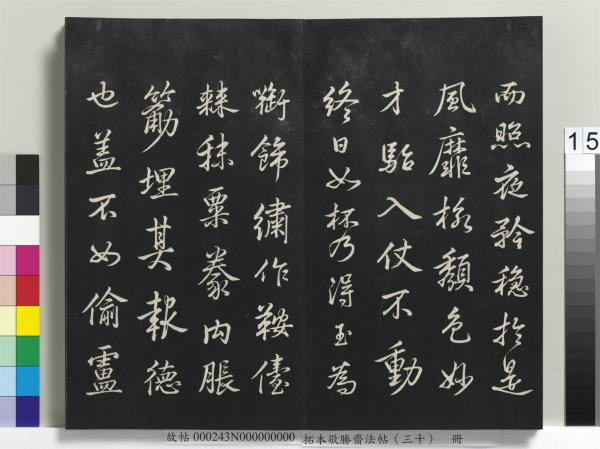 而照夜矜穩於是
風靡格頹色妙
才駘入仗不動
終日如杯乃得玉為
銜飾繡作鞍儓
棘秣粟豢肉脹
筋埋其報德
也蓋不如偷盧
15
故帖 000243N000000000 拓本敬勝齋法帖（三十） 冊